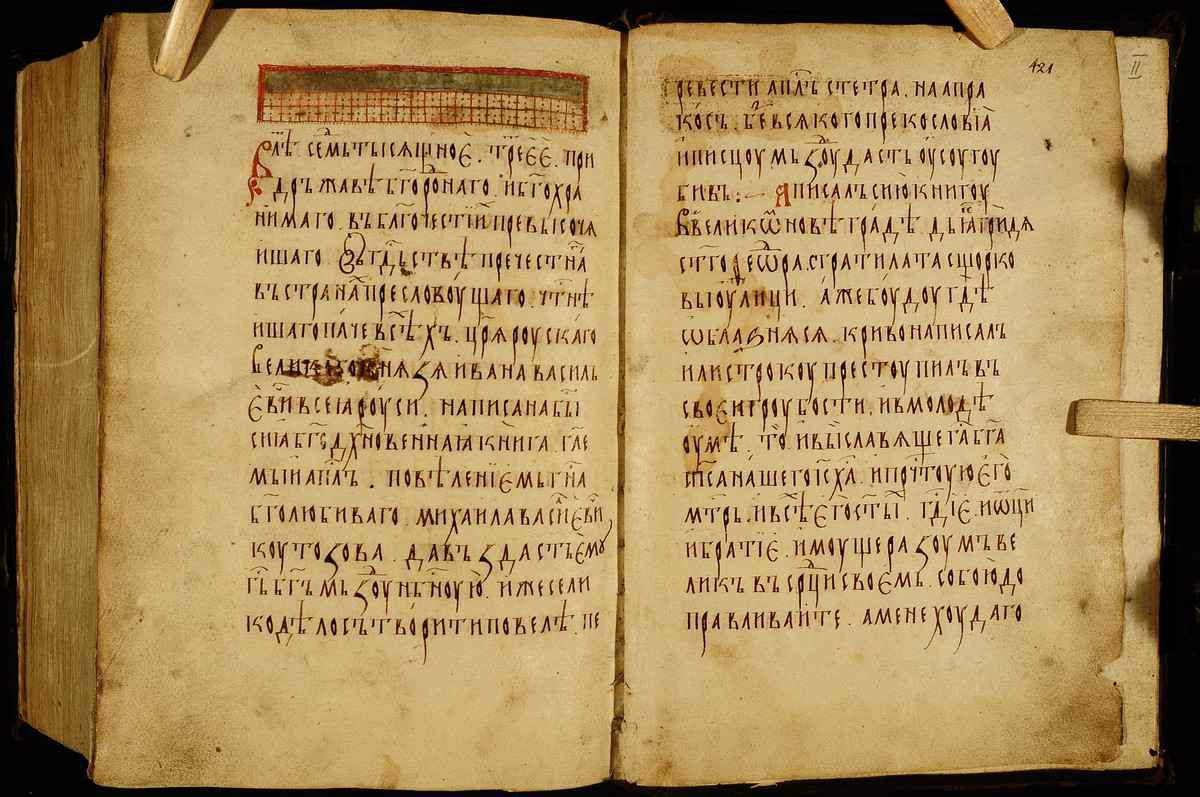 В лѣ семьтысяшноє. трⷮеєє. при
дръжавѣ бг҃оⷬванаго. и бг҃охра
нимаго. въ блг҃очестїй превысоча
ишаго
въ страна пресловоущаго. чтⷭнѣ
ишаго паче всѣхъ. цр҃я роускаго
великаго кня ꙁя ивана василь
єви всеꙗ роуси. написана бы
сиꙗ бг҃одх҃новеннаꙗ книга. гл҃е
мыи ап҃лъ. повѣленїємь г҃на
б҃голюбиваго. михаила васиєви
коутоꙁова. давъ ꙁдастъ ємꙋ
г҃ь б҃гъ мъꙁдоу нб҃ноую. иже сели
ко дѣло сътворити повелѣ. пе
ревести ап҃лъ с тетра. на апра
косъ. беⷥ всякого прекословїа
и писцоу мъꙁдоу дасть оусоугоу
бивъ:~ Я писалъ сию книгоу
в великѡ новѣградѣ дьꙗ гридя
ст҃го феѡⷣра стратилата с щорко
выѝ оулици. аже боудоу гдѣ
ѡблазняся. криво написалъ
или строкоу престоупилъ въ
своєи гроубости. и в молодѣ
оумѣ. то и вы славяще г҃а б҃га
сп҃са нашего і҃с х҃а. и прⷱтоую єго
м҃трь. и всѣ єго ст҃ы. г҃дїє. и ѡц҃и
и братїє. имоуще раꙁоумъ ве
ликъ въ срⷣци своємь. собою до
правливаите. а мене хоудаго
421
II